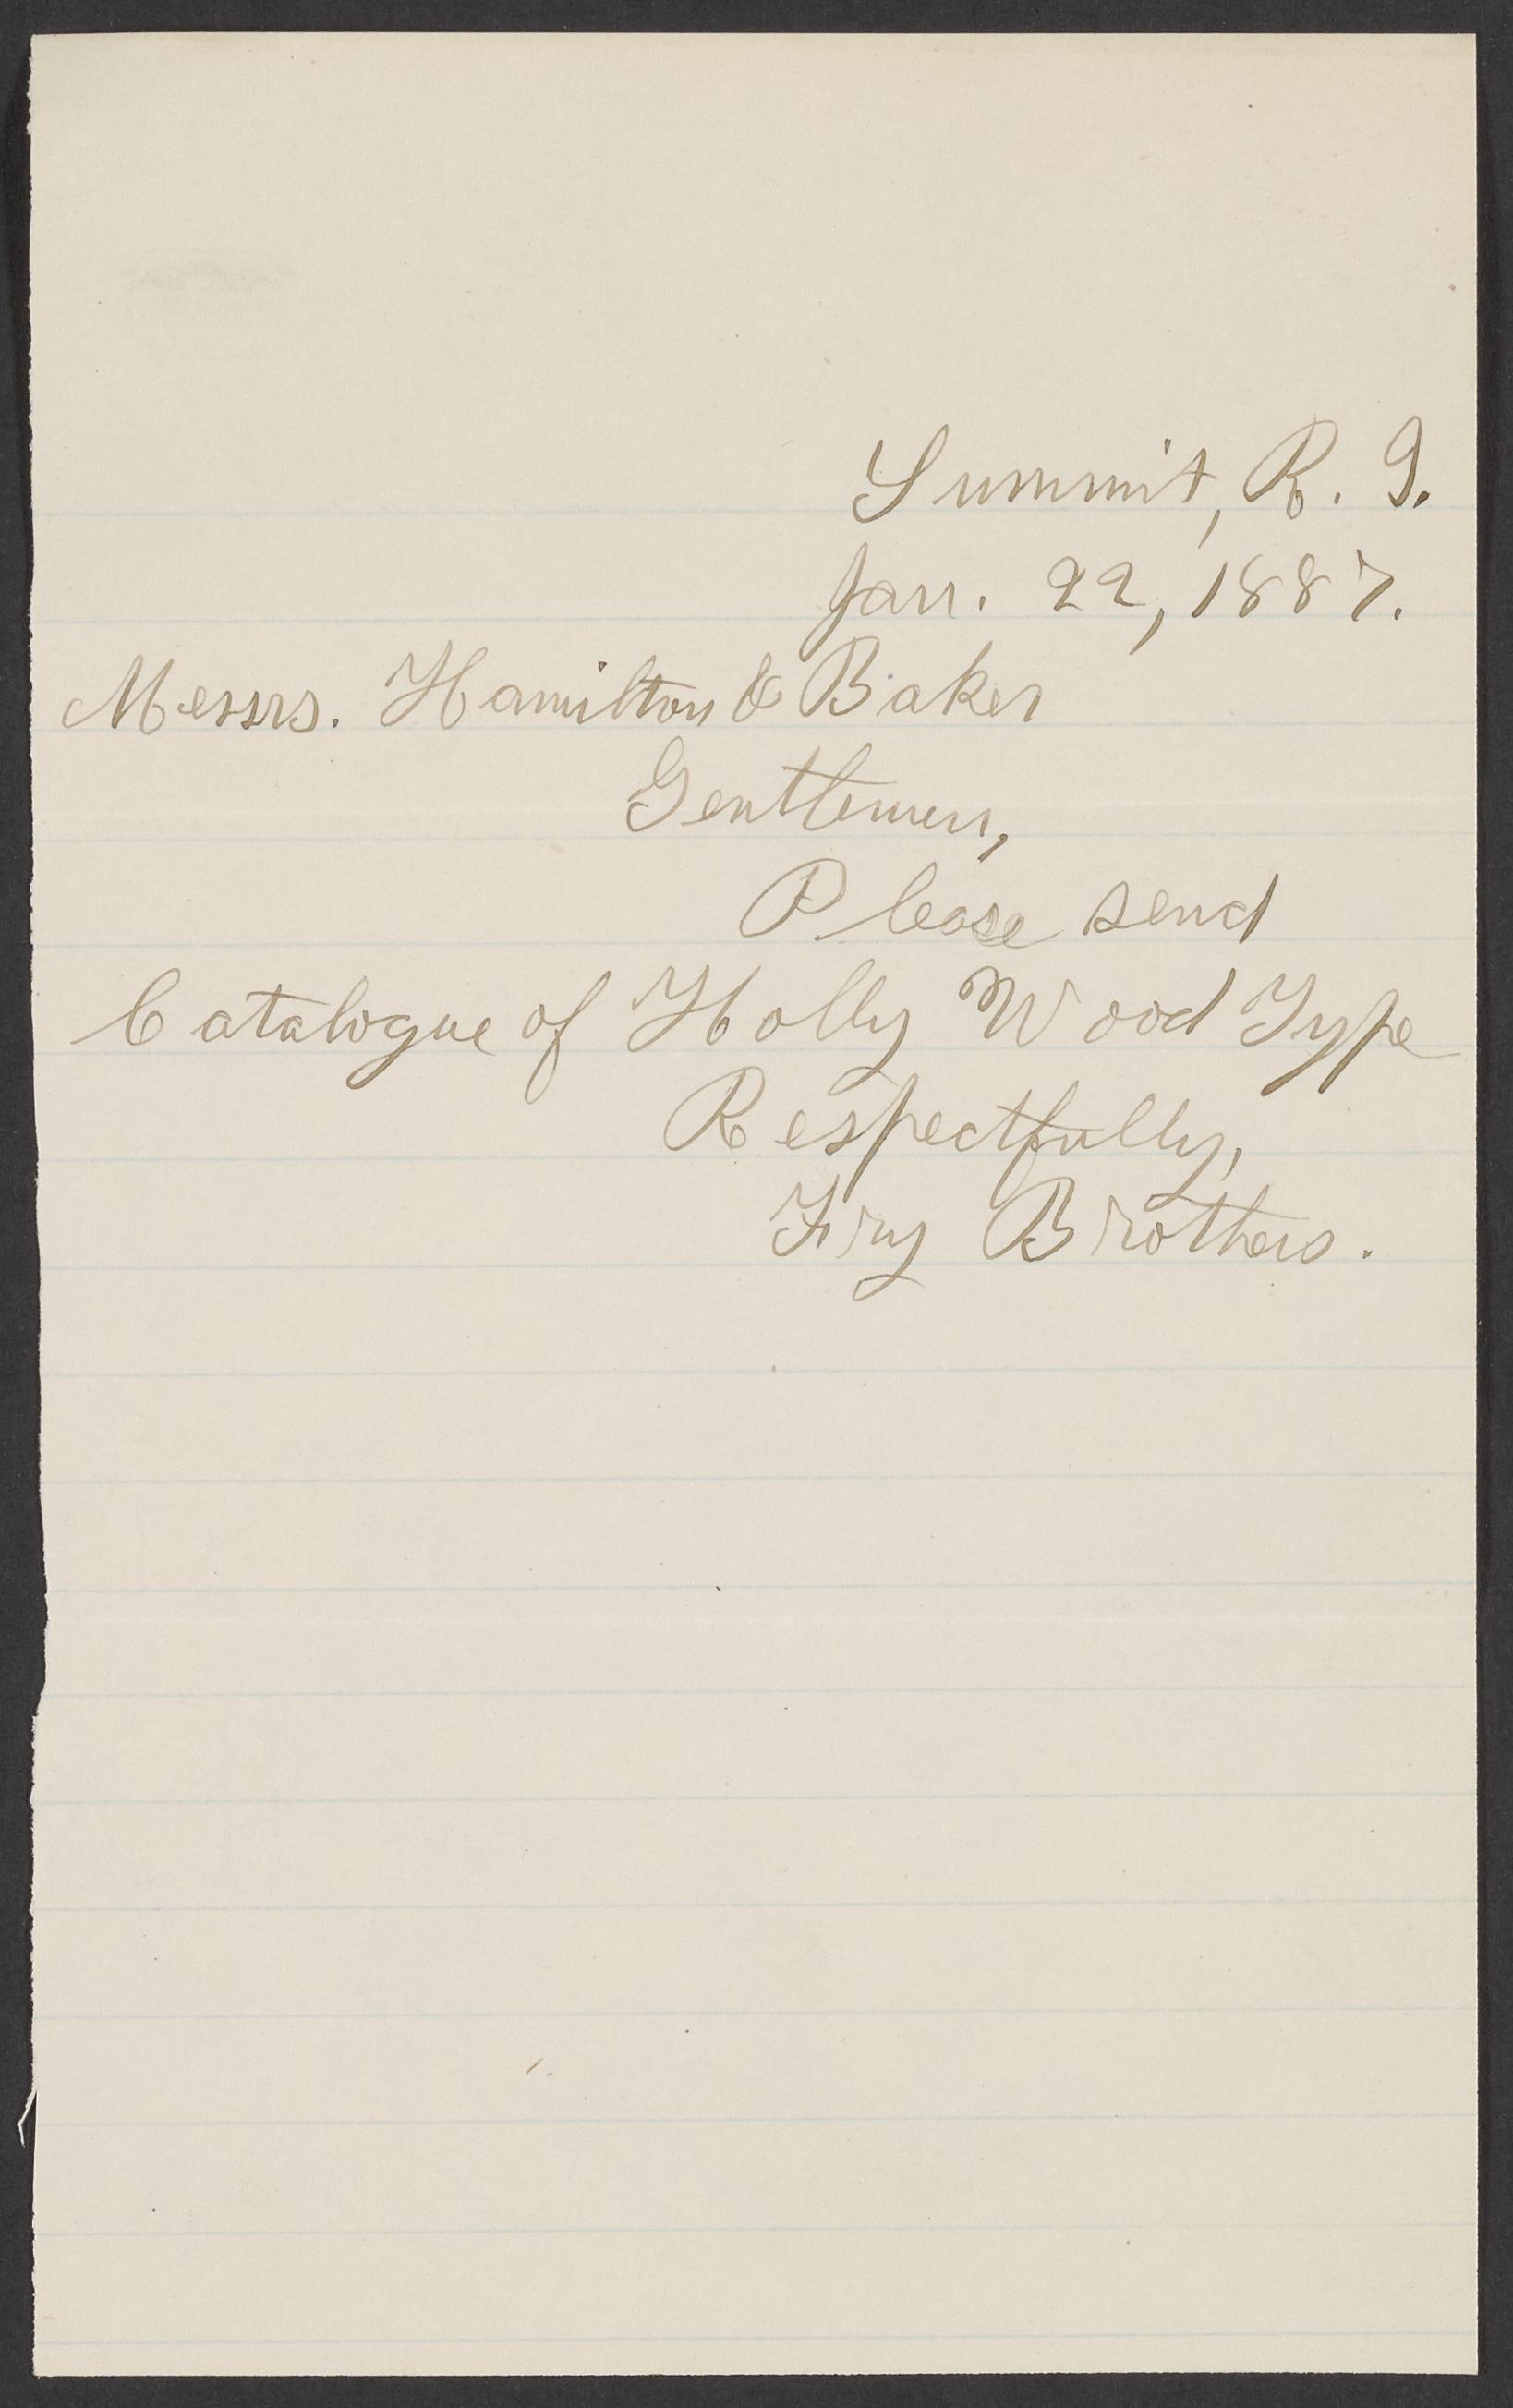 Summit, R. I.
Jan. 22, 1887.
Messrs. Hamilton & Baker
Gentlemen,
Please send
Catalogue of Holly Wood Type
Respectfully,
Fry Brothers.